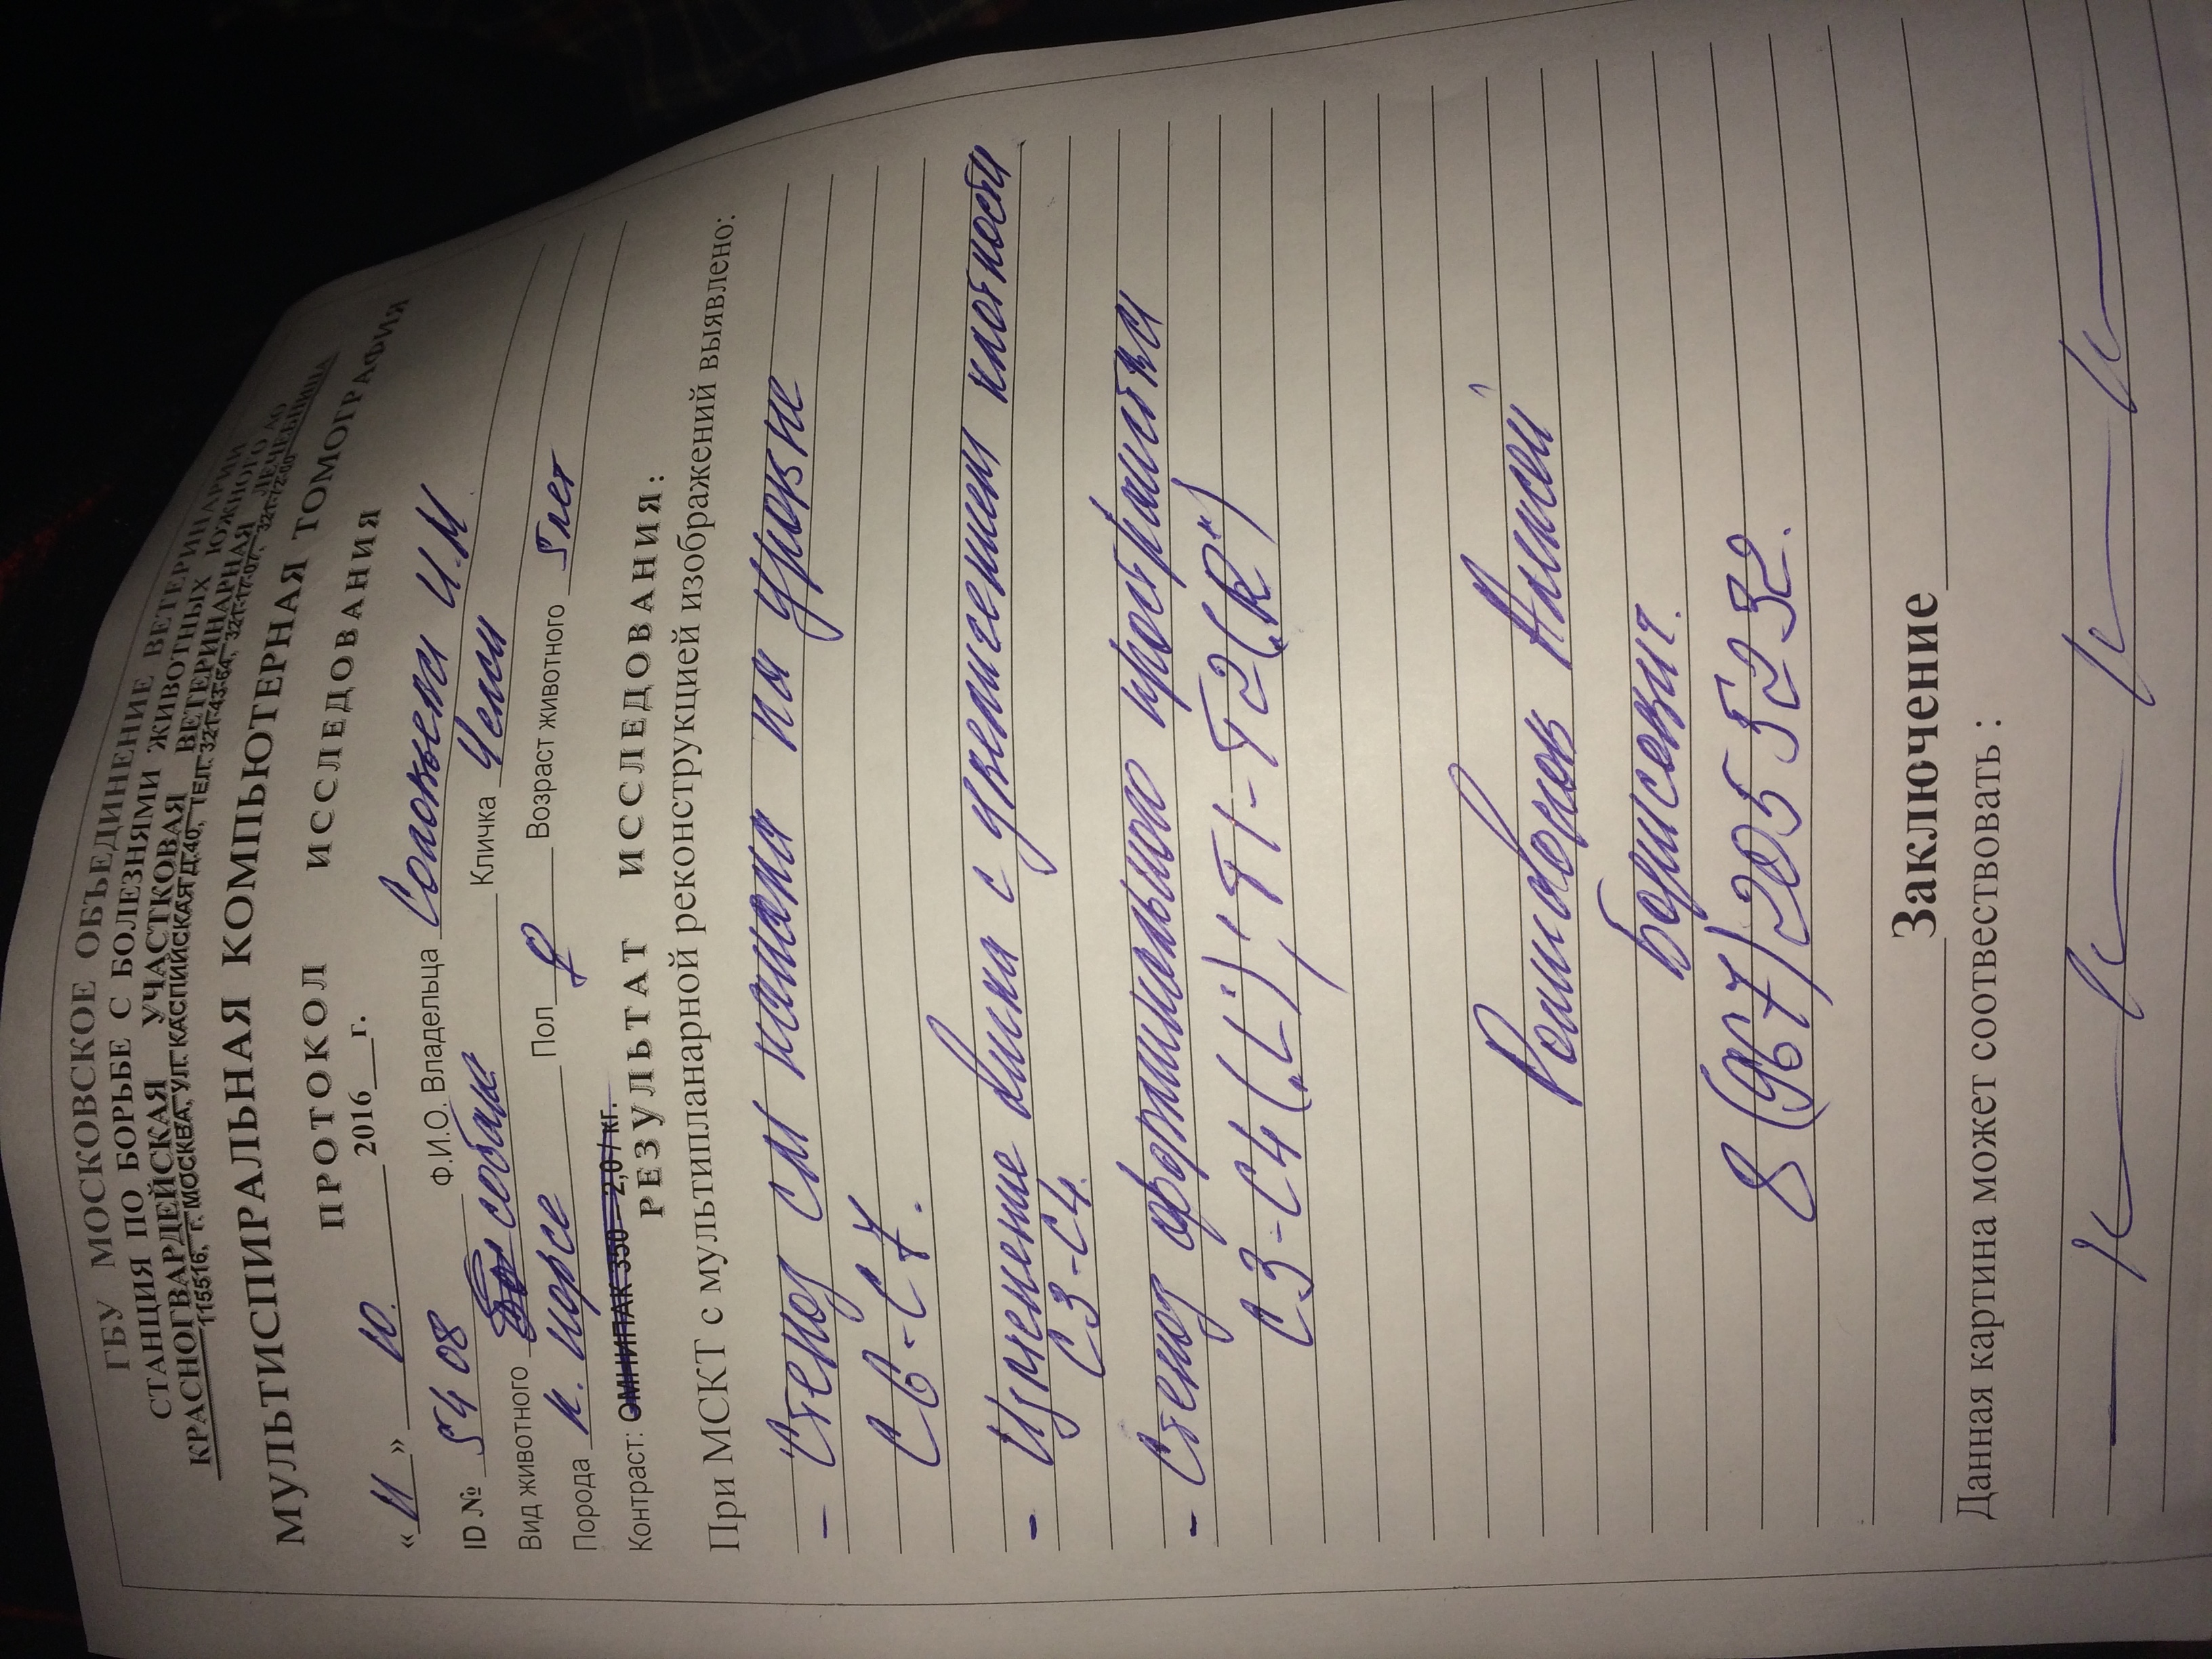 ГБУ МОСКОВСКОЕ ОБЪЕДИНЕНИЕ ВЕТЕРИНАРИИ
СТАНЦИЯ ПО БОРЬБЕ С БОЛЕЗНЯМИ ЖИВОТНЫХ ЮЖНОГО АО
КРАСНОГВАРДЕЙСКАЯ УЧАСТКОВАЯ ВЕТЕРИНАРНАЯ ЛЕЧЕБНИЦА
115516, Г. МОСКВА, УЛ. КАСПИЙСКАЯ Д.40, ТЕЛ. 321-43-64, 321-17-07, 321-72-00
МУЛЬТИСПИРАЛЬНАЯ КОМПЬЮТЕРНАЯ ТОМОГРАФИЯ
ПРОТОКОЛ ИССЛЕДОВАНИЯ
«11» 10. 2016 г.
ID № 5408 Ф.И.О. Владельца И.М.
Вид животного собака Кличка Челси
Порода к. корсо Пол ♀ Возраст животного 5 лет
Контраст: ОМНИПАК 350 – 2,0 / кг.
РЕЗУЛЬТАТ ИССЛЕДОВАНИЯ:
При МСКТ с мультипланарной реконструкцией изображений выявлено:
- Стеноз см канала на уровне
C6-C7.
- Изменение диска с увеличением плотности
C3-C4.
- Стеноз форминального пространства
C3-C4 („L"); T1-T2 („R")
Ромидонов Алисей
Борисевич.
8(967) 205 52 32.
Заключение
Данная картина может соотвествовать :